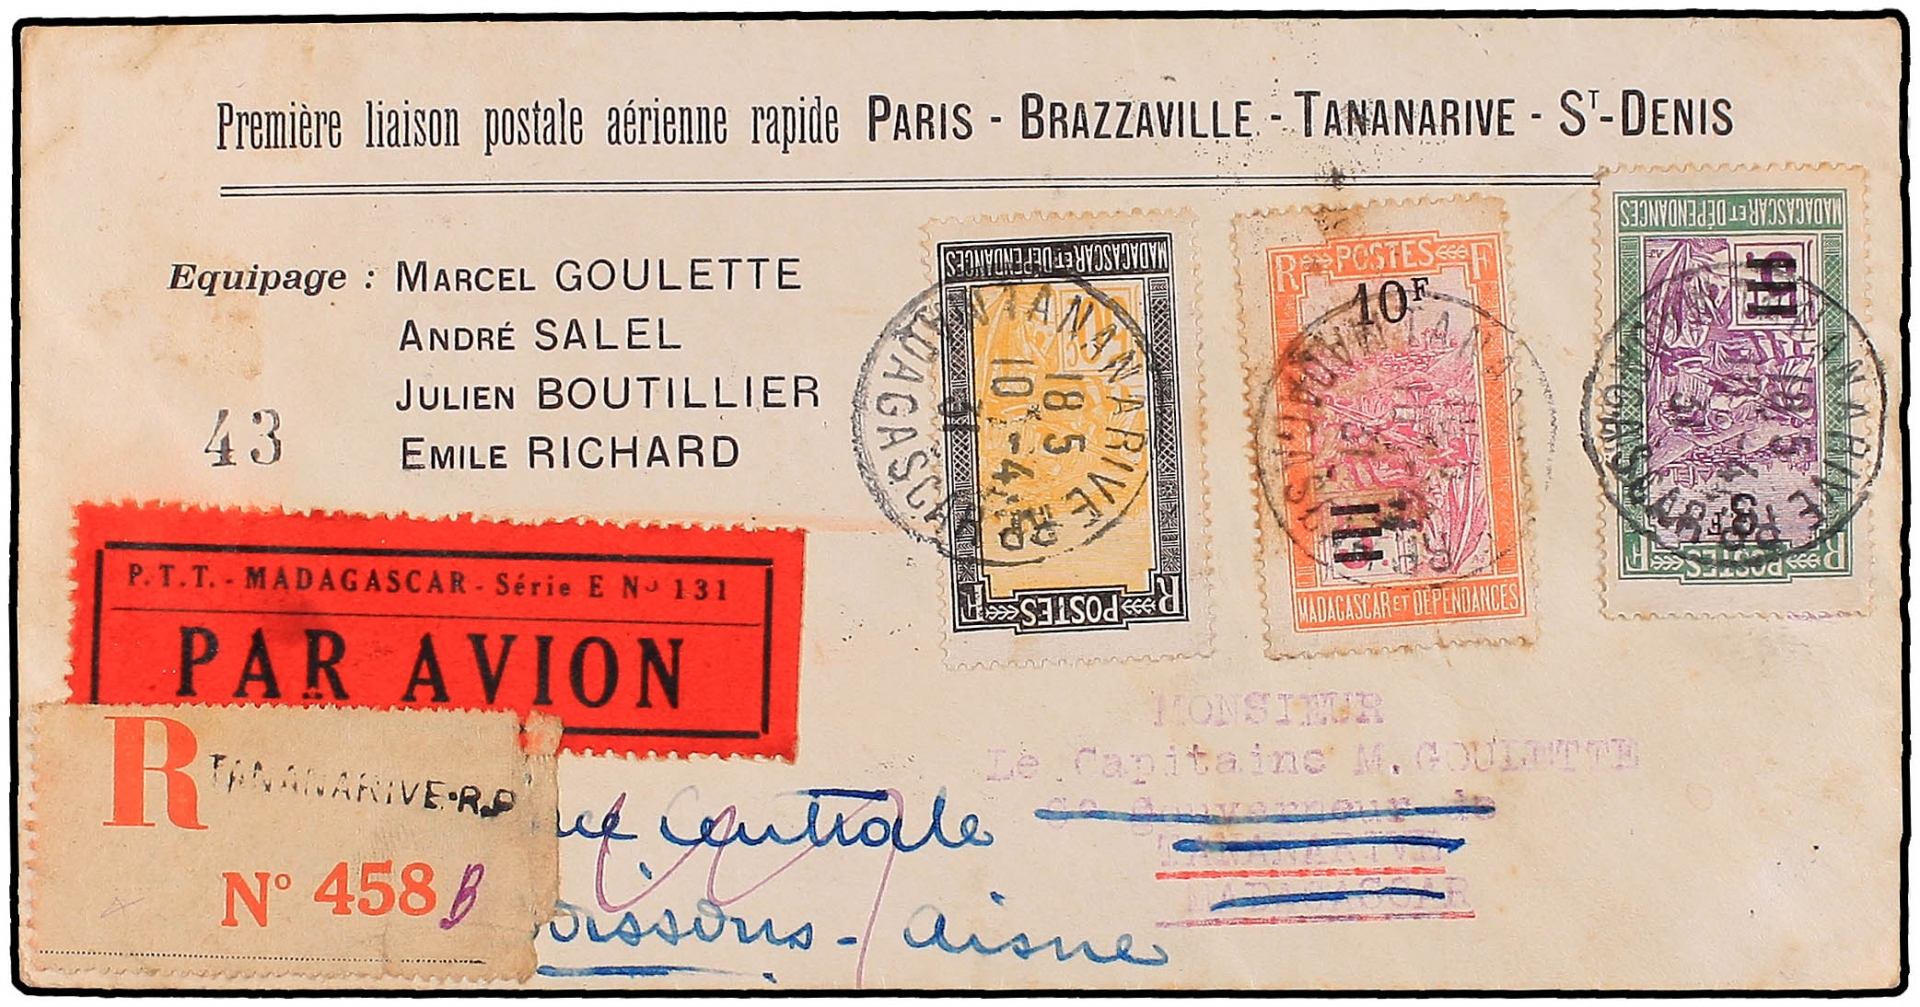 Première liaison postale aérienne rapide PARIS - BRAZZAVILLE - TANANARIVE - ST-DENIS
Equipage : MARCEL GOULETTE
ANDRÉ SALEL
JULIEN BOUTILLIER
EMILE RICHARD
43
MADAGASCAR ET DÉPENDANCES
TANANARIVE RP
18 5
10 -4
31
MADAGASCAR
R POSTES F
R POSTES F
10F
MADAGASCAR ET DÉPENDANCES
MADAGASCAR ET DÉPENDANCES
TANANARIVE RP
MADAGASCAR
3F
R POSTES F
P.T.T. - MADAGASCAR - Série E No 131
PAR AVION
R TANANARIVE-R.P
No 458 B
MONSIEUR
Le Capitaine M. GOULETTE
Gouverneur de
TANANARIVE
MADAGASCAR
Centrale
Soissons - Aisne